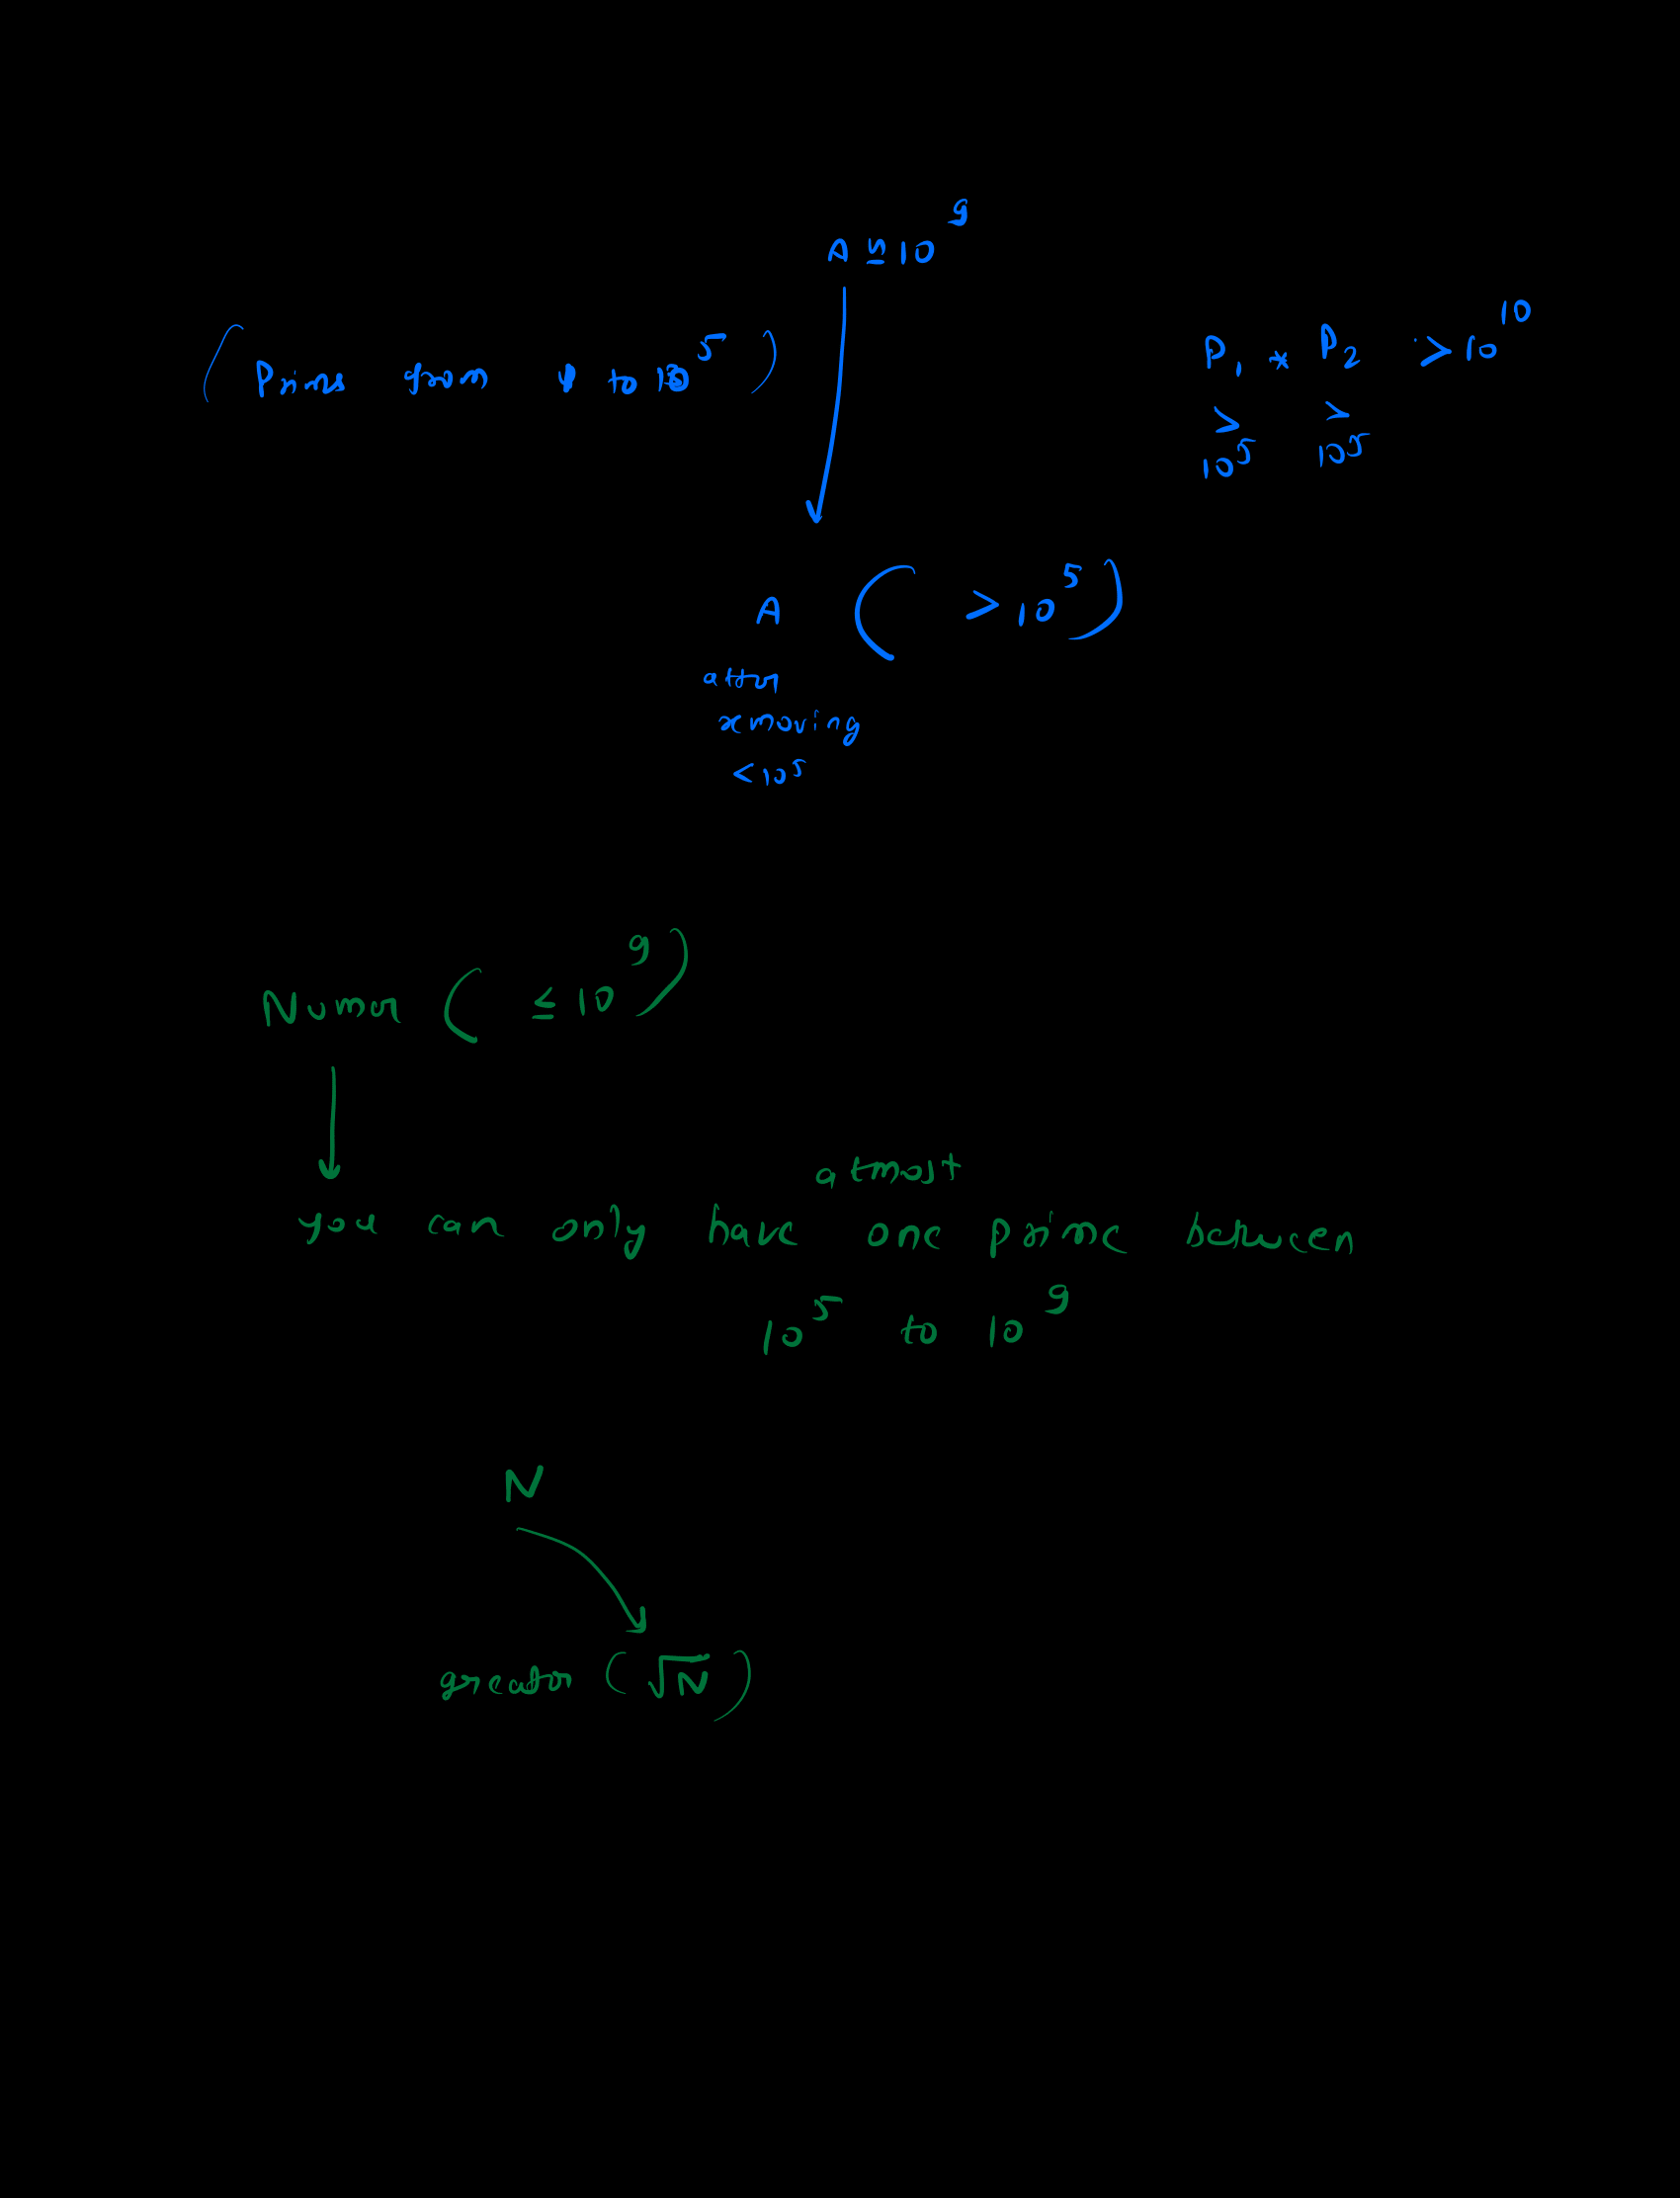 A ≤ 10^9
(Primes from 1 to 10^5)
P1 * P2 > 10^10
> >
10^5 10^5
A ( > 10^5 )
after
removing
< 10^5
Number ( ≤ 10^9 )
atmost
you can only have one prime between
10^5 to 10^9
N
greater (√N)